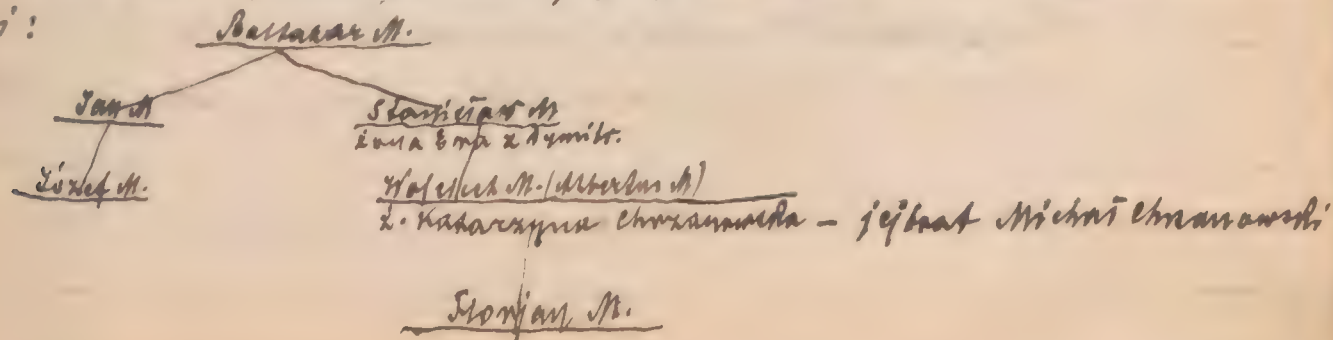 Baltazar M.
Jan M
Stanisław M
żona Ewa z Dymitr.
Józef M.
Wojciech M. (Albertus M)
ż. Katarzyna Chrzanowska – jej brat Michał Chrzanowski
Florjan M.